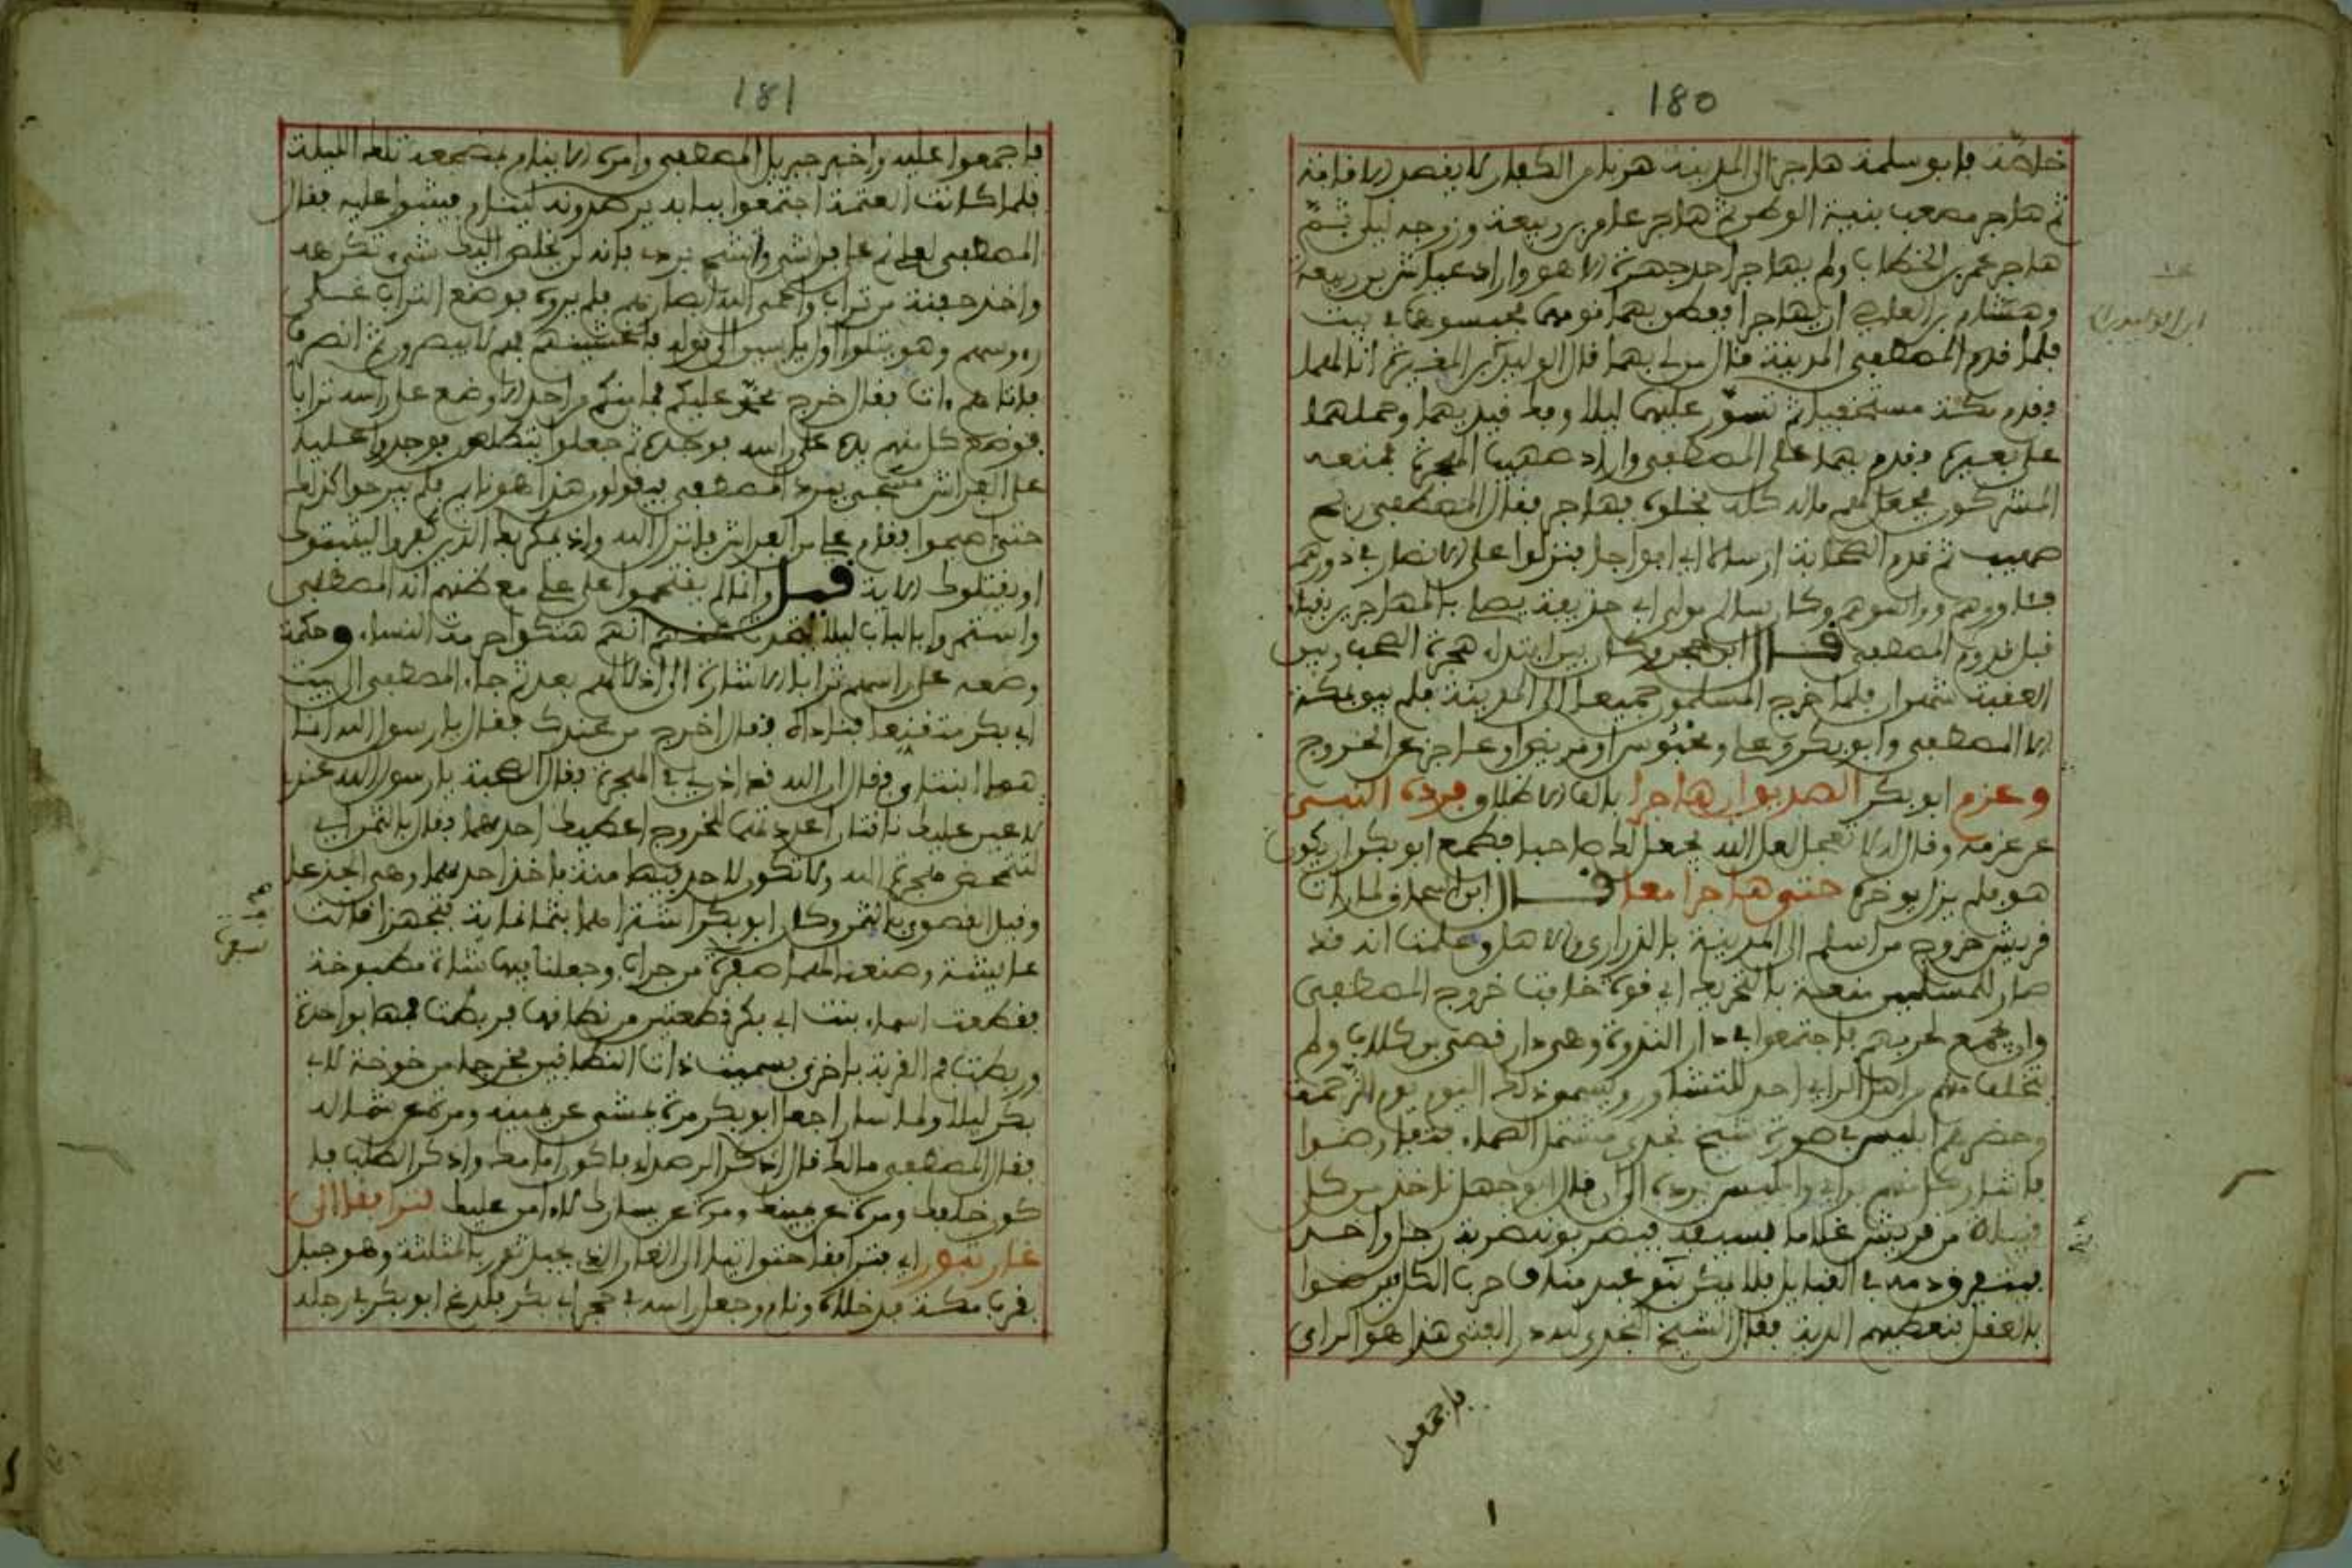 180
خاصة فابو سلمة هاجر الى المدينة هربا من الكفار لا بقصد الاقامة
ثم هاجر مصعب بنية الوطن ثم هاجر عامر بن ربيعة وزوجه ليلى ثم
هاجر عمر بن الخطاب ولم يهاجر احد جهرة الا هو واراد عياش بن ربيعة
وهشام بن العاص ان يهاجرا ففطن بهما قومهما فحبسوهما في بيت
فلما قدم المصطفى المدينة قال من لي بهما قال الوليد بن المغيرة انا لهما
فقدم مكة مستخفيا ثم تسور عليهما ليلا وفك قيديهما وحملهما
على بعيره فقدم بهما على المصطفى واراد صهيب الهجرة فمنعه
المشركون فجعل لهم ماله كله فخلوه فهاجر فقال المصطفى ربح
صهيب ثم قدم الصحابة ارسالا اي افواجا فنزلوا على الانصار في دورهم
فآووهم وواسوهم وكان سالم مولى ابي حذيفة يصلي بالمهاجرين بقباء
قبل قدوم المصطفى قال ابن حجر وكان بين ابتداء هجرة الصحب وبين
العقبة شهران فلما خرج المسلمون جميعا الى المدينة فلم يبق بمكة
الا المصطفى وابو بكر وعلي ومحبوس او مريض او عاجز عن الخروج
وعزم ابو بكر الصديق ان هاجرا بالف الاطلاق فرده النبي
عن عزمه وقال له لا تعجل لعل الله يجعل لك صاحبا فطمع ابو بكر ان يكون
هو فلم يزل يؤخره حتى هاجرا معا قال ابن اسحاق لما رأت
قريش خروج من اسلم الى المدينة بالذراري والاهل وعلمت انه قد
صار للمسلمين منعة بالتحريك اي قوة خافت خروج المصطفى
وان يجمع لحربهم فاجتمعوا في دار الندوة وهي دار قصي بن كلاب ولم
يتخلف منهم من اهل الراي احد للتشاور ويسموا ذلك اليوم يوم الزحمة
وحضرهم ابليس في صورة شيخ نجدي مشتمل الصماء
فاشار كل منهم براي وابليس يرده الى ان قال ابو جهل ناخذ من كل
قبيلة من قريش غلاما بسيفه فيضربونه ضربة رجل واحد
فيتفرق دمه في القبائل فلا يقدر بنو عبد مناف حرب الكل فيرضوا
بالعقل فنعطيهم الدية فقال الشيخ النجدي لله در الفتى هذا هو الراي
فاجمعوا
181
فاجمعوا عليه واخبر جبريل المصطفى وامره الا ينام مضجعه تلك الليلة
فلما كانت العتمة اجتمعوا ببابه يرصدونه لينام فيثبوا عليه فقال
المصطفى لعلي نم على فراشي واتشح بردي فانه لن يخلص اليك شيء تكرهه
واخذ حفنة من تراب واعمى الله ابصارهم فلم يروه فوضع التراب على
رءوسهم وهو يتلو اول يس الى قوله فاغشيناهم فهم لا يبصرون ثم انصرف
فاتاهم آت فقال خرج محمد عليكم فما منكم من احد الا وضع على راسه ترابا
فوضع كل منهم يده على راسه فوجده ثم جعلوا يتطلعون فوجدوا عليا
على الفراش متسجى ببرد المصطفى فيقولون هذا هو نائم فلم يبرحوا كذلك
حتى اصبحوا فقام علي من الفراش فانزل الله واذ يمكر بك الذين كفروا ليثبتوك
او يقتلوك الاية قيل وانما لم يقتحموا على علي مع ظنهم انه المصطفى
واستمروا بالباب ليلا لئلا يتحدث عنهم انهم هتكوا حرمة النساء وحكمة
وضعه على راسهم ترابا الاشارة الى اذلالهم بعد ثم جاء المصطفى الى بيت
ابي بكر متقنعا فناداه فقال اخرج من عندك فقال يا رسول الله انما
هما ابنتاي فقال ان الله قد اذن لي في الهجرة فقال الصحبة يا رسول الله عندي
ناقتان اعددتهما للخروج اعطيك احداهما فقال بالثمن اي
لتتمحض هجرته الله ولا تكون لاحد فيها منة فاخذ احداهما وهي الجذعاء
وقيل القصوى بالثمن وكان ابو بكر اشتراهما بثمانمائة فتجهزا قالت
عائشة وصنعنا لهما سفرة من جراب وجعلنا فيها شاة مطبوخة
فقطعت اسماء بنت ابي بكر قطعتين من نطاقها فربطت فمها بواحدة
وربطت فم القربة باخرى فسميت ذات النطاقين فخرجا من خوخة لابي
بكر ليلا ولما سارا جعل ابو بكر مرة يمشي عن يمينه ومرة عن شماله
فقال المصطفى مالك قال اذكر الرصد فاكون امامك واذكر الطلب فا
كون خلفك ومرة عن يمينك ومرة عن يسارك لا آمن عليك فترافقا الى
غار بثور اي فترافقا حتى اتيا الى الغار الذي بجبل ثور بالمثلثة وهو جبل
بقرب مكة فدخلاه ونام وجعل راسه في حجر ابي بكر فلدغ ابو بكر في رجله